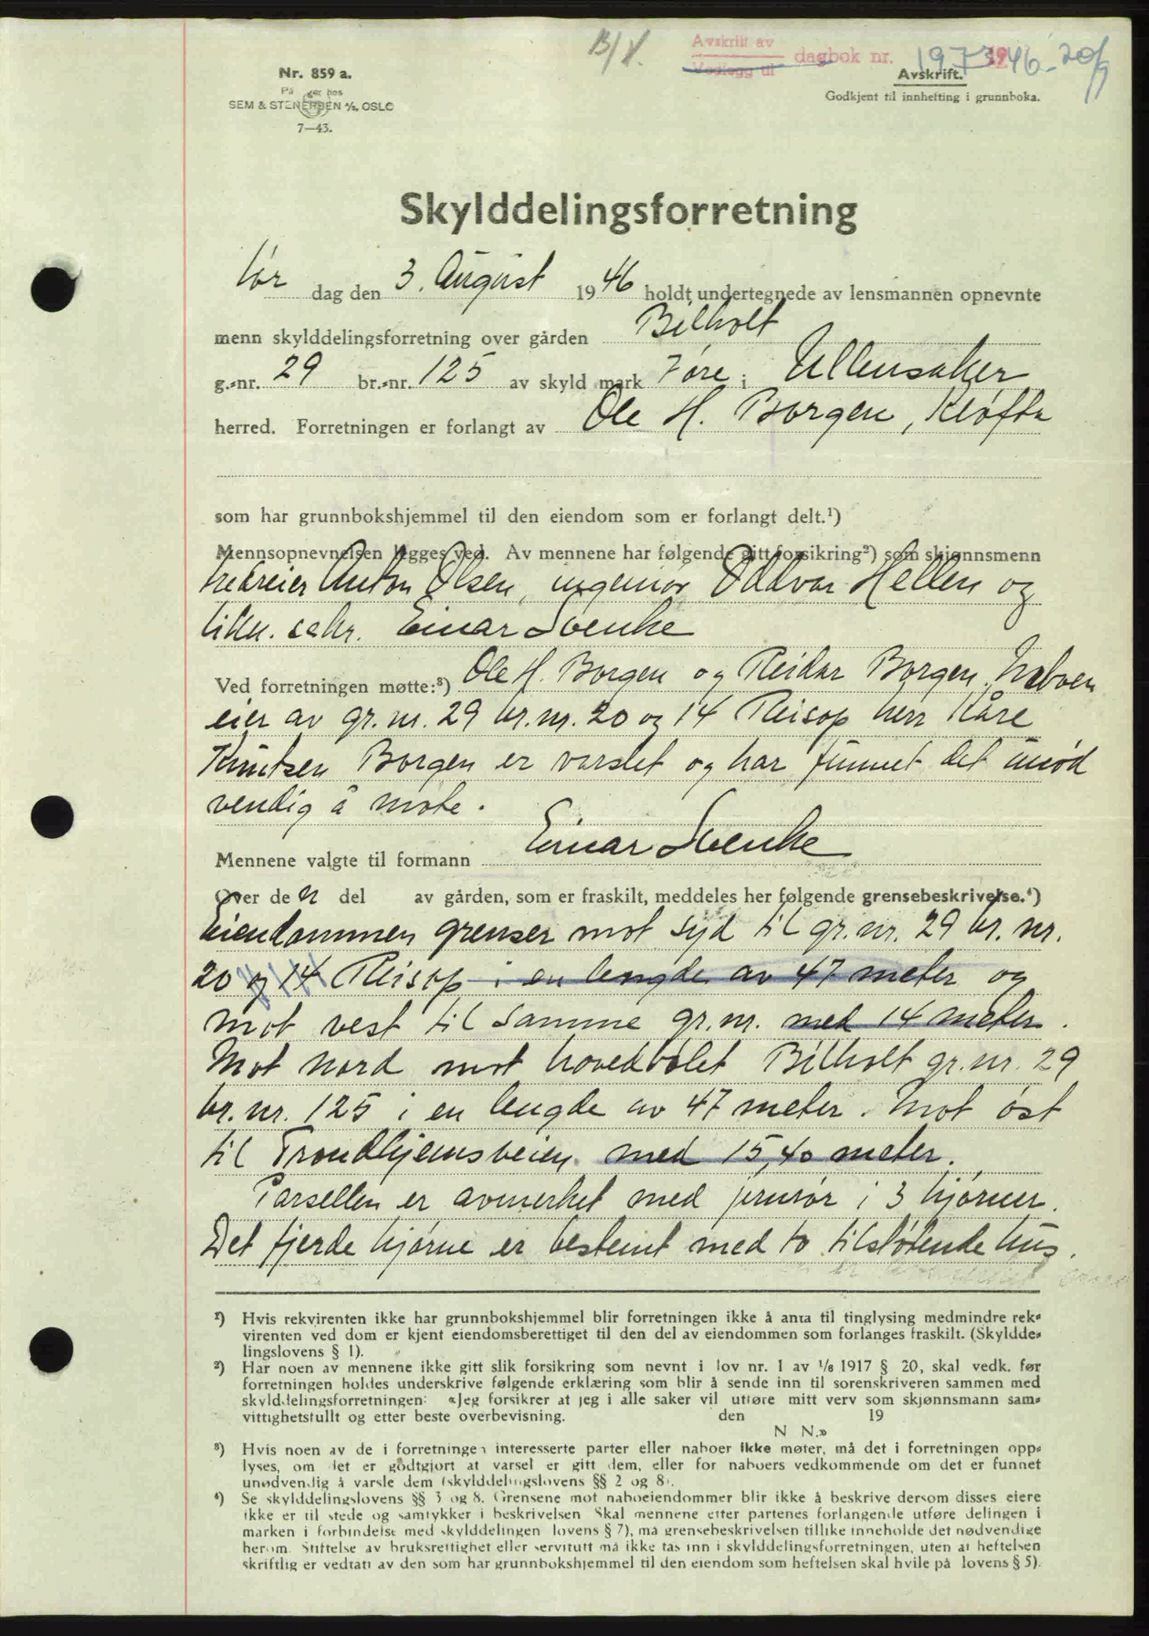 B/V.
Avskrift av
Vedlegg til dagbok nr. 1973 1946-20/9
Nr. 859 a.
SEM & STENERSEN A/S, OSLO
7—43.
Avskrift.
Godkjent til innhefting i grunnboka.
Skylddelingsforretning
Lør dag den 3. August 1946 holdt undertegnede av lensmannen opnevnte
menn skylddelingsforretning over gården Bilholt
g.-nr. 29 br.-nr. 125 av skyld mark 7 øre i Ullensaker
herred. Forretningen er forlangt av Ole H. Borgen, Kløfta
som har grunnbokshjemmel til den eiendom som er forlangt delt.¹)
Mennsopnevnelsen legges ved. Av mennene har følgende gitt forsikring²) som skjønnsmenn
Anton Olsen, ingeniør Oddvar Hellen og
Einar Svenke
Ved forretningen møtte:³) Ole H. Borgen og Reidar Borgen. Naboen
eier av gr. nr. 29 br. nr. 20 og 14 Reisop herr Kåre
Knutsen Borgen er varslet og har funnet det unød
vendig å møte.
Mennene valgte til formann Einar Svenke
Over den del av gården, som er fraskilt, meddeles her følgende grensebeskrivelse.⁴)
Eiendommen grenser mot syd til gr. nr. 29 br. nr.
20 og 14 Reisop i en lengde av 47 meter og
mot vest til samme gr. nr. med 14 meter.
Mot nord mot hovedbølet Bilholt gr. nr. 29
br. nr. 125 i en lengde av 47 meter. Mot øst
til Trondhjemsveien med 15,40 meter.
Parsellen er avmerket med jernrør i 3 hjørner.
Det fjerde hjørne er bestemt med to tilstøtende hus.
¹) Hvis rekvirenten ikke har grunnbokshjemmel blir forretningen ikke å anta til tinglysing medmindre rek-
virenten ved dom er kjent eiendomsberettiget til den del av eiendommen som forlanges fraskilt. (Skyldde-
lingslovens § 1).
²) Har noen av mennene ikke gitt slik forsikring som nevnt i lov nr. 1 av 1/6 1917 § 20, skal vedk. før
forretningen holdes underskrive følgende erklæring som blir å sende inn til sorenskriveren sammen med
skylddelingsforretningen: «Jeg forsikrer at jeg i alle saker vil utføre mitt verv som skjønnsmann sam-
vittighetsfullt og etter beste overbevisning. den 19
N. N.»
³) Hvis noen av de i forretningen interesserte parter eller naboer ikke møter, må det i forretningen opp-
lyses, om det er godtgjort at varsel er gitt dem, eller for naboers vedkommende om det er funnet
unødvendig å varsle dem (skylddelingslovens §§ 2 og 8).
⁴) Se skylddelingslovens §§ 3 og 8. Grensene mot naboeiendommer blir ikke å beskrive dersom disses eiere
ikke er til stede og samtykker i beskrivelsen. Skal mennene etter partenes forlangende utføre delingen i
marken i forbindelse med skylddelingen (lovens § 7), må grensebeskrivelsen tillike inneholde det nødvendige
herom. Stiftelse av bruksrettighet eller servitutt må ikke tas inn i skylddelingsforretningen, uten at heftelsen
skriftlig er vedtatt av den som har grunnbokshjemmel til den eiendom som heftelsen skal hvile på (lovens § 5).